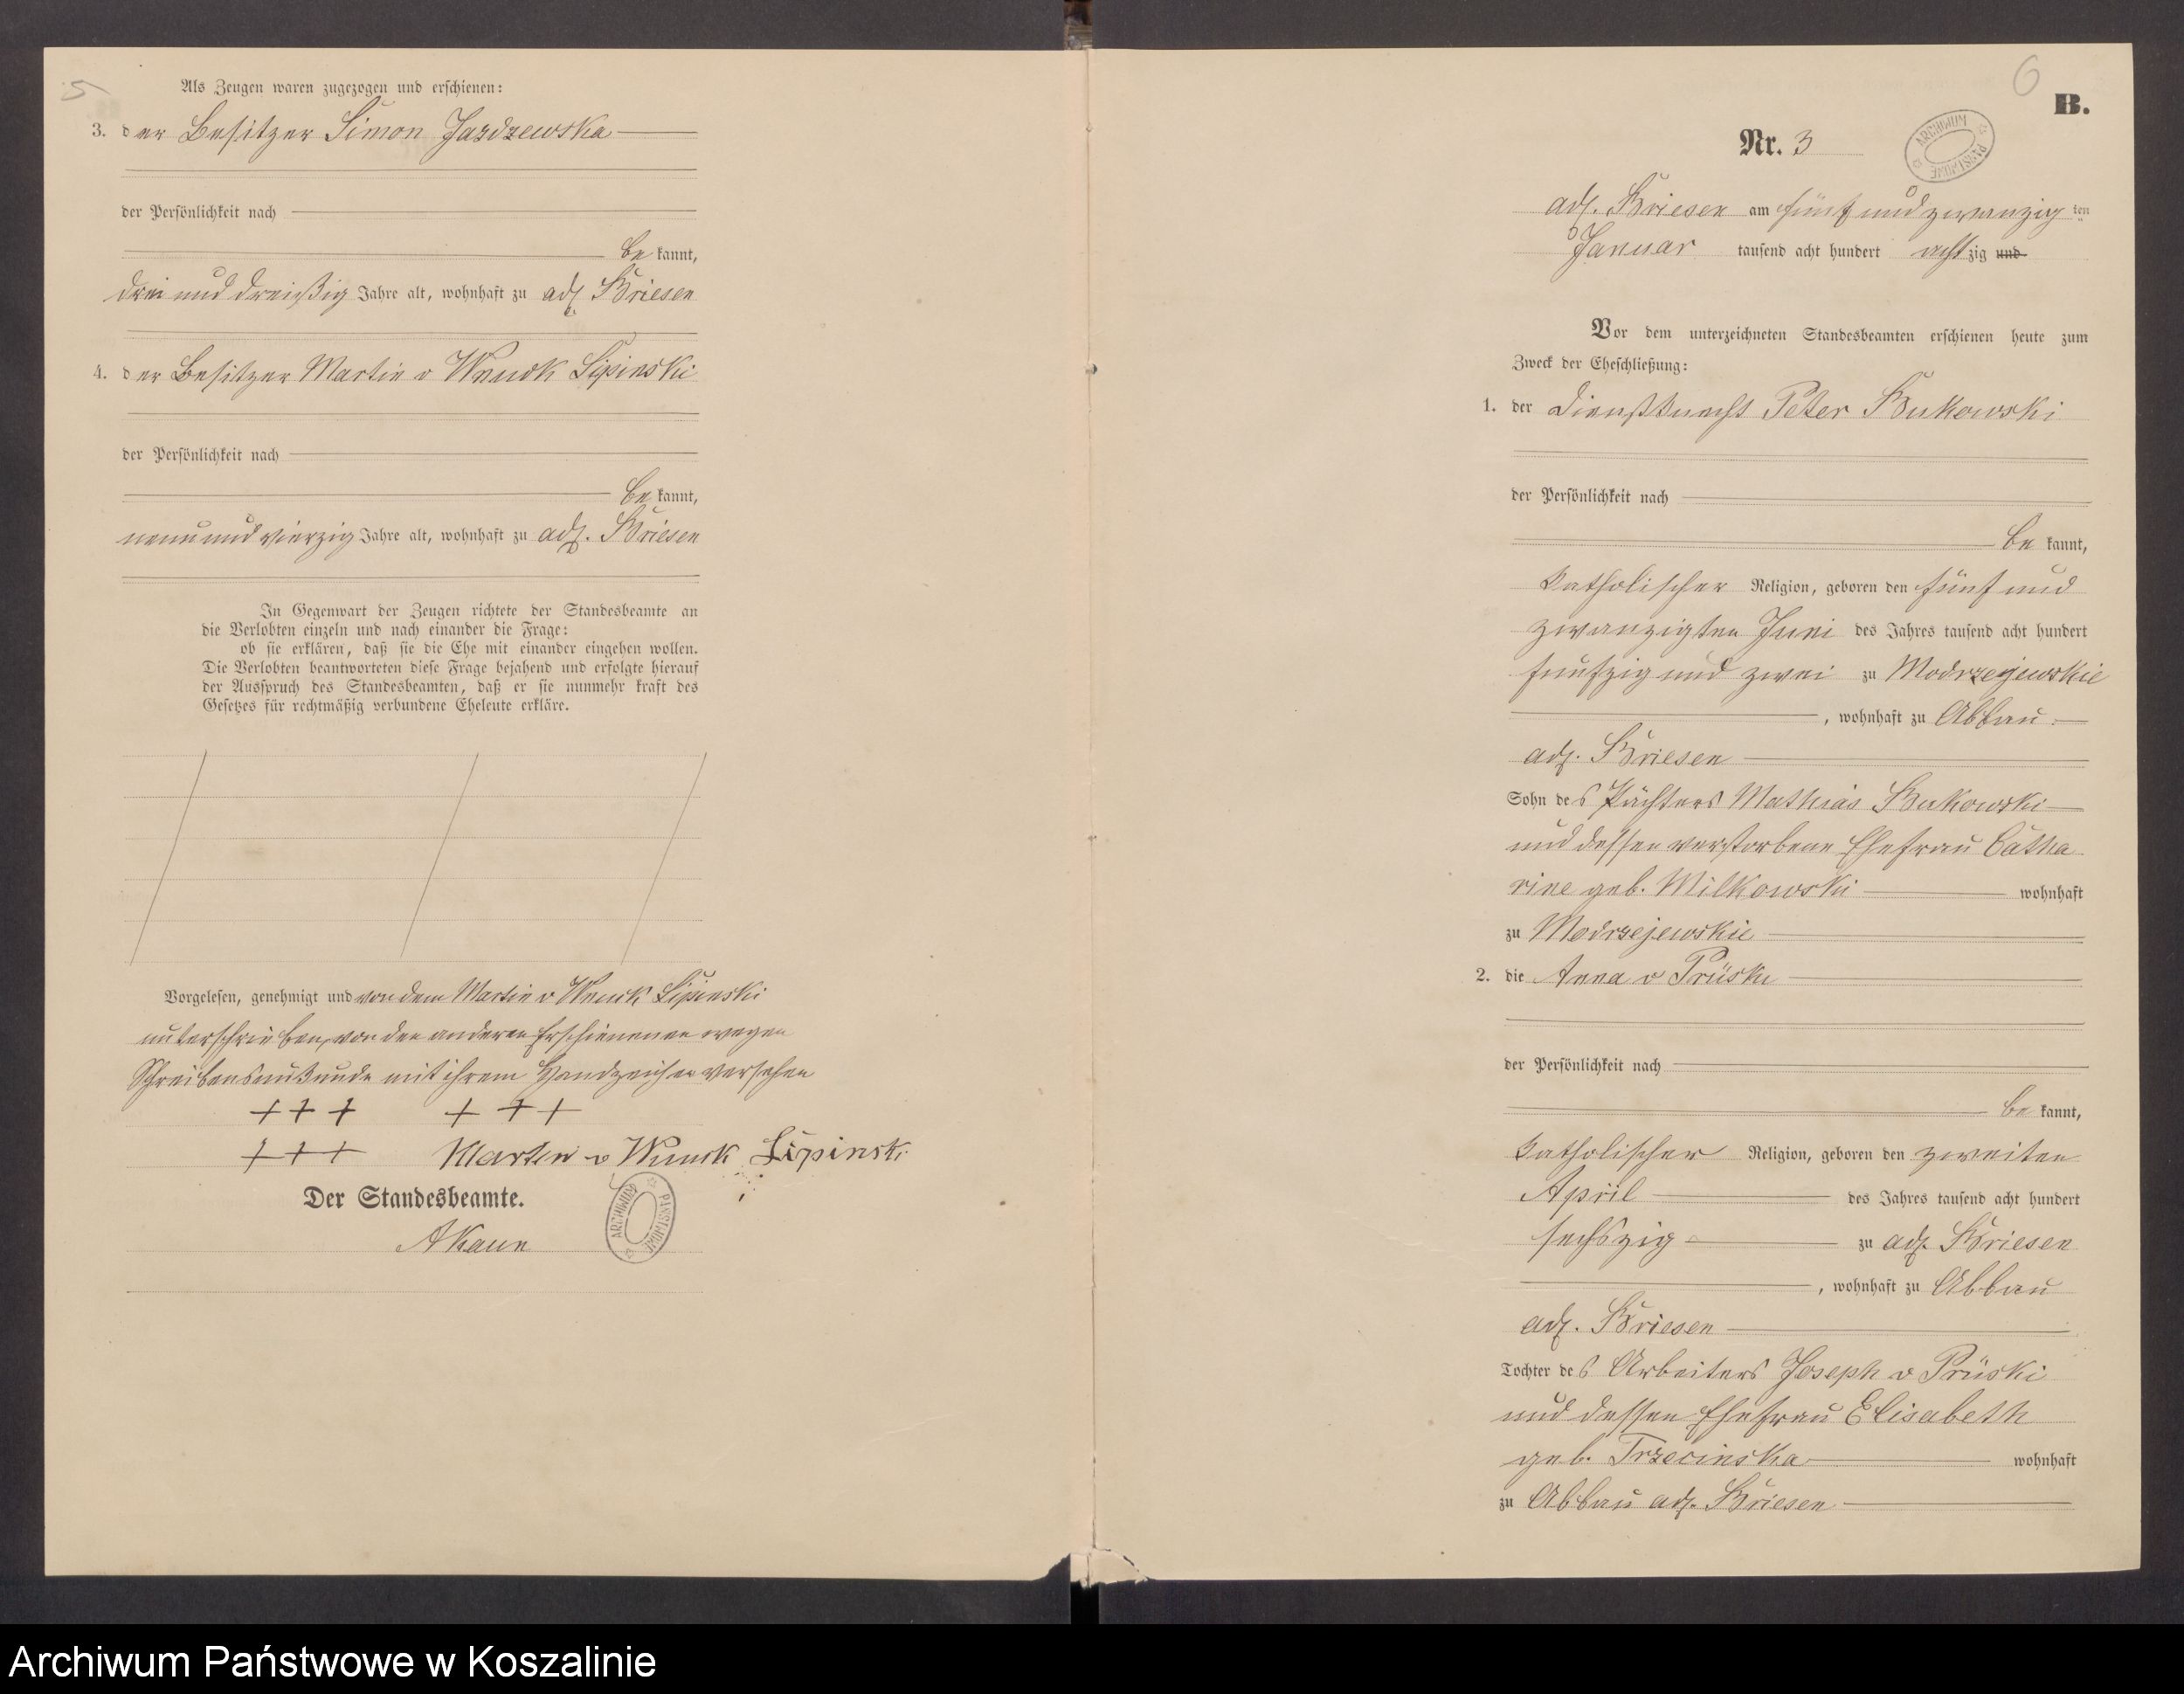 5
Als Zeugen waren zugezogen und erschienen:
3. der Besitzer Simon Jazdzewska
der Persönlichkeit nach
be kannt,
drei und dreißig Jahre alt, wohnhaft zu adl. Briesen
4. der Besitzer Martin v Wnuck Lipinski
der Persönlichkeit nach
be kannt,
neun und vierzig Jahre alt, wohnhaft zu adl. Briesen
In Gegenwart der Zeugen richtete der Standesbeamte an
die Verlobten einzeln und nach einander die Frage:
ob sie erklären, daß sie die Ehe mit einander eingehen wollen.
Die Verlobten beantworteten diese Frage bejahend und erfolgte hierauf
der Ausspruch des Standesbeamten, daß er sie nunmehr kraft des
Gesetzes für rechtmäßig verbundene Eheleute erkläre.
Vorgelesen, genehmigt und von dem Martin v Wnuck Lipinski
unterschrieben, von den anderen Erschienenen wegen
Schreibensunkunde mit ihrem Handzeichen versehen
+++ +++
+++ Marten v Wnuck Lipinski
Der Standesbeamte.
ARCHIWUM PAŃSTWOWE
6
B.
Nr. 3
ARCHIWUM PAŃSTWOWE
adl. Briesen am fünf und zwanzig ten
Januar tausend acht hundert acht zig und
Vor dem unterzeichneten Standesbeamten erschienen heute zum
Zweck der Eheschließung:
1. der Dienstknecht Peter Bukowski
der Persönlichkeit nach
be kannt,
katholischer Religion, geboren den fünf und
zwanzigten Juni des Jahres tausend acht hundert
funfzig und zwei zu Modrzejewskie
, wohnhaft zu Abbau
adl. Briesen
Sohn des Pächters Mathias Bukowski
und dessen verstorbene Ehefrau Catha
rine geb. Milkowski wohnhaft
zu Modrzejewskie
2. die Anna v Prüska
der Persönlichkeit nach
be kannt,
katholischer Religion, geboren den zweiten
April des Jahres tausend acht hundert
sechszig zu adl. Briesen
, wohnhaft zu Abbau
adl. Briesen
Tochter des Arbeiters Joseph v Prüski
und dessen Ehefrau Elisabeth
geb. Trzecinska wohnhaft
zu Abbau adl. Briesen
Archiwum Państwowe w Koszalinie